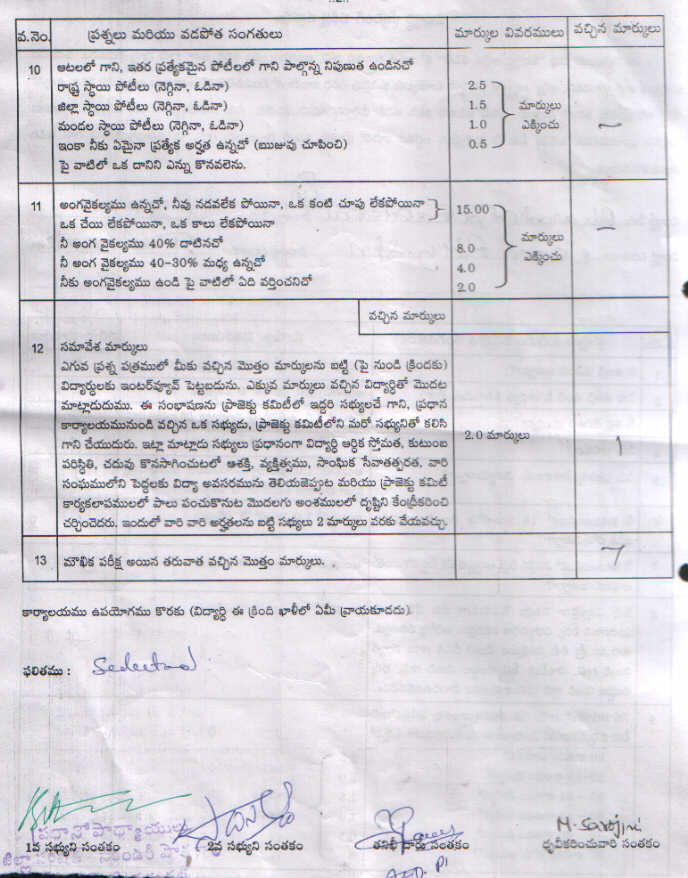 ..2..
వ.నెం. ప్రశ్నలు మరియు వడపోత సంగతులు మార్కుల వివరములు వచ్చిన మార్కులు
10 ఆటలలో గాని, ఇతర ప్రత్యేకమైన పోటీలలో గాని పాల్గొన్న నిపుణత ఉండినచో
రాష్ట్ర స్థాయి పోటీలు (నెగ్గినా, ఓడినా) 2.5
జిల్లా స్థాయి పోటీలు (నెగ్గినా, ఓడినా) 1.5 మార్కులు
మండల స్థాయి పోటీలు (నెగ్గినా, ఓడినా) 1.0 ఎక్కించు –
ఇంకా నీకు ఏమైనా ప్రత్యేక అర్హత ఉన్నచో (ఋజువు చూపించి) 0.5
పై వాటిలో ఒక దానిని ఎన్ను కొనవలెను.
11 అంగవైకల్యము ఉన్నచో, నీవు నడవలేక పోయినా, ఒక కంటి చూపు లేకపోయినా 15.00
ఒక చేయి లేకపోయినా, ఒక కాలు లేకపోయినా –
నీ అంగ వైకల్యము 40% దాటినచో 8.0 మార్కులు
నీ అంగ వైకల్యము 40-30% మధ్య ఉన్నచో 4.0 ఎక్కించు
నీకు అంగవైకల్యము ఉండి పై వాటిలో ఏది వర్తించనిచో 2.0
వచ్చిన మార్కులు
12 సమావేశ మార్కులు
ఎగువ ప్రశ్న పత్రములో మీకు వచ్చిన మొత్తం మార్కులను బట్టి (పై నుండి క్రిందకు)
విద్యార్థులకు ఇంటర్వ్యూన్ పెట్టబడును. ఎక్కువ మార్కులు వచ్చిన విద్యార్థితో మొదట
మాట్లాడుదుము. ఈ సంభాషణను ప్రాజెక్టు కమిటీలో ఇద్దరి సభ్యులచే గాని, ప్రధాన
కార్యాలయమునుండి వచ్చిన ఒక సభ్యుడు, ప్రాజెక్టు కమిటీలోని మరో సభ్యునితో కలిసి
గాని చేయుదురు. ఇట్లా మాట్లాడు సభ్యులు ప్రధానంగా విద్యార్థి ఆర్థిక స్తోమత, కుటుంబ 2.0 మార్కులు 1
పరిస్థితి, చదువు కొనసాగించుటలో ఆశక్తి, వ్యక్తిత్వము, సాంఘిక సేవాతత్పరత, వారి
సంఘములోని పెద్దలకు విద్యా అవసరమును తెలియజెప్పుట మరియు ప్రాజెక్టు కమిటీ
కార్యకలాపములలో పాలు పంచుకొనుట మొదలగు అంశములలో దృష్టిని కేంద్రీకరించి
చర్చించెదరు. ఇందులో వారి వారి అర్హతలను బట్టి సభ్యులు 2 మార్కులు వరకు వేయవచ్చు.
13 మౌఖిక పరీక్ష అయిన తరువాత వచ్చిన మొత్తం మార్కులు. 7
కార్యాలయము ఉపయోగము కొరకు (విద్యార్థి ఈ క్రింది ఖాళీలో ఏమీ వ్రాయకూడదు).
ఫలితము : Selected
M. Sarojini
ప్రధానోపాధ్యాయులు
1వ సభ్యుని సంతకం 2వ సభ్యుని సంతకం తనిఖీ దారు సంతకం ధృవీకరించువారి సంతకం